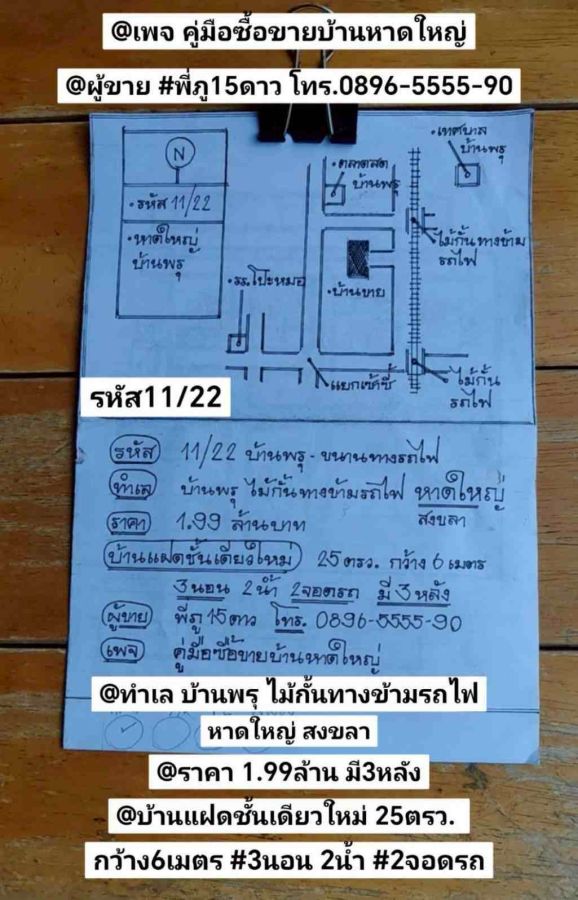 @เพจ คู่มือซื้อขายบ้านหาดใหญ่
@ผู้ขาย #พี่ภู15ดาว โทร.0896-5555-90
N
• รหัส 11/22
• หาดใหญ่
บ้านพรุ
• ตลาดสด
บ้านพรุ
• เทศบาล
บ้านพรุ
ไม้กั้นทางข้าม
รถไฟ
• รร.โป๊ะหมอ
• บ้านขาย
แยกเช้าซี้
ไม้กั้น
รถไฟ
รหัส11/22
รหัส 11/22 บ้านพรุ - ขนานทางรถไฟ
ทำเล บ้านพรุ ไม้กั้นทางข้ามรถไฟ หาดใหญ่
สงขลา
ราคา 1.99 ล้านบาท
บ้านแฝดชั้นเดียวใหม่ 25 ตรว. กว้าง 6 เมตร
3 นอน 2 น้ำ 2 จอดรถ มี 3 หลัง
ผู้ขาย พี่ภู 15 ดาว โทร. 0896-5555-90
เพจ คู่มือซื้อขายบ้านหาดใหญ่
@ทำเล บ้านพรุ ไม้กั้นทางข้ามรถไฟ
หาดใหญ่ สงขลา
@ราคา 1.99ล้าน มี3หลัง
@บ้านแฝดชั้นเดียวใหม่ 25ตรว.
กว้าง6เมตร #3นอน 2น้ำ #2จอดรถ